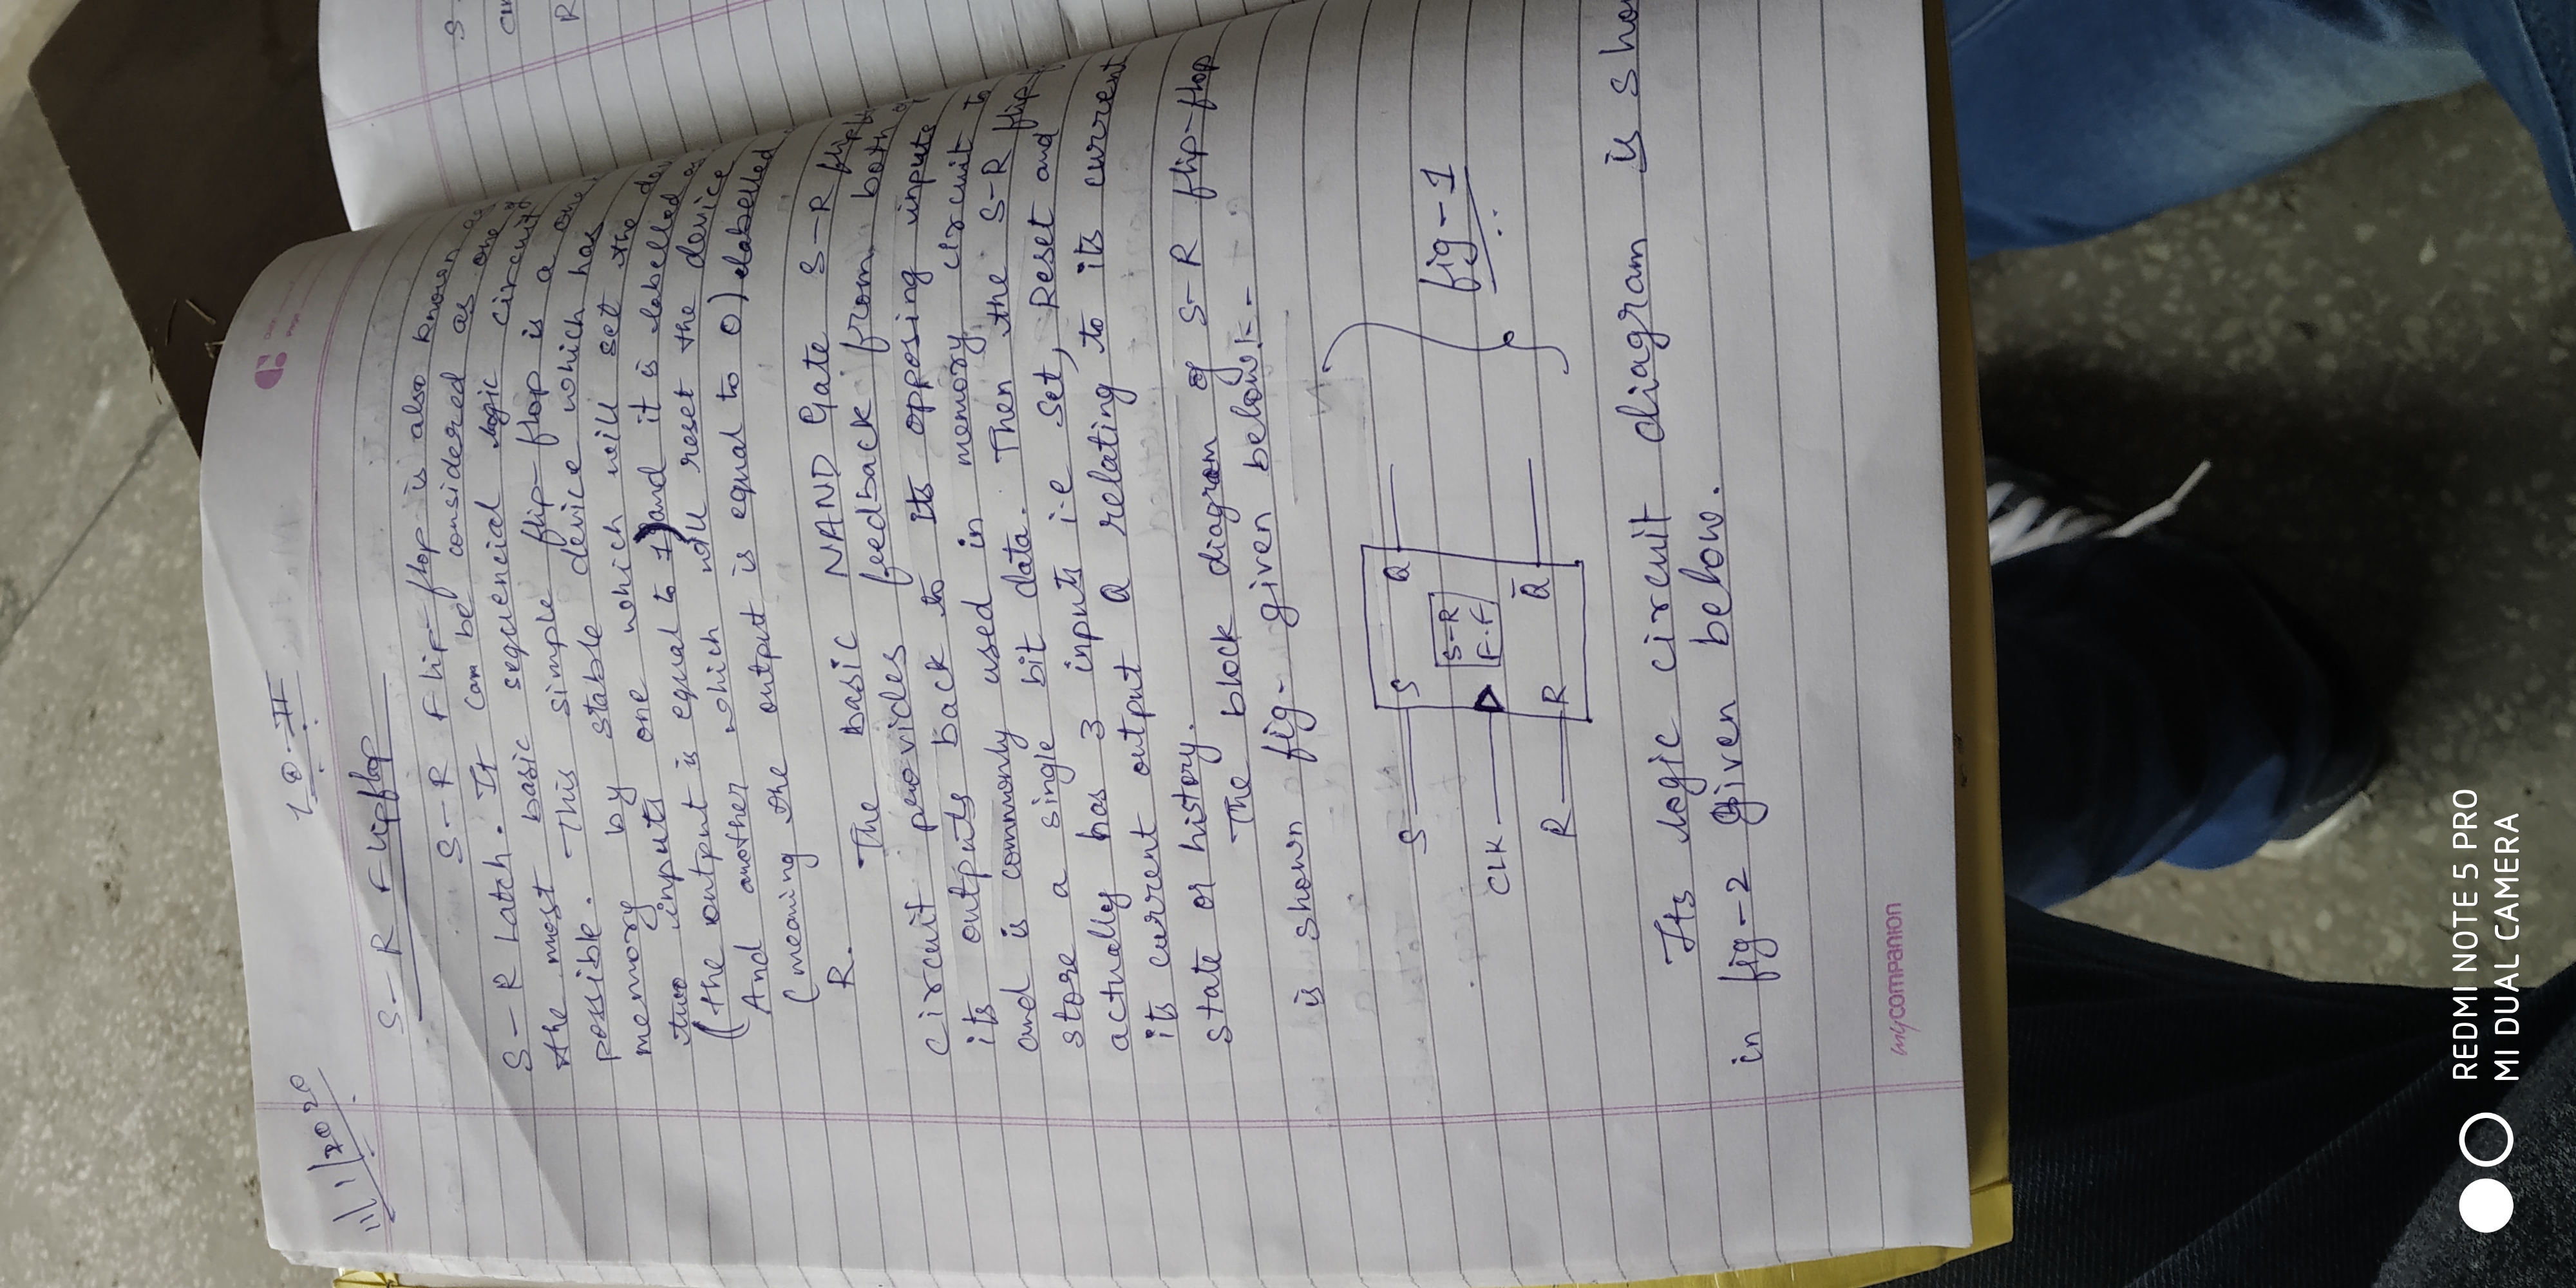 11/1/2020
10-II
S-R Flipflop
S-R Flip-flop is also known as
S-R Latch. It can be considered as one of
the most basic sequencial logic circuit
possible. This simple flip-flop is a one
memory by stable device which has
two inputs one which will set the
(the output is equal to 1) and it is labelled as
And another which will reset the device
(meaning the output is equal to 0) labelled
R.
The basic NAND Gate S-R
circuit provides feedback from both of
its outputs back to its opposing inputs
and is commonly used in memory circuit to
store a single bit data. Then the S-R flip-
actually has 3 inputs i.e Set, Reset and
its current output Q relating to its current
state or history.
The block diagram of S-R flip-flop
is shown fig- given below:-
S S Q
S-R
CLK F.F
fig-1
R R Q̅
Its logic circuit diagram is
in fig-2 given below.
mycompanion
S
R
REDMI NOTE 5 PRO
MI DUAL CAMERA